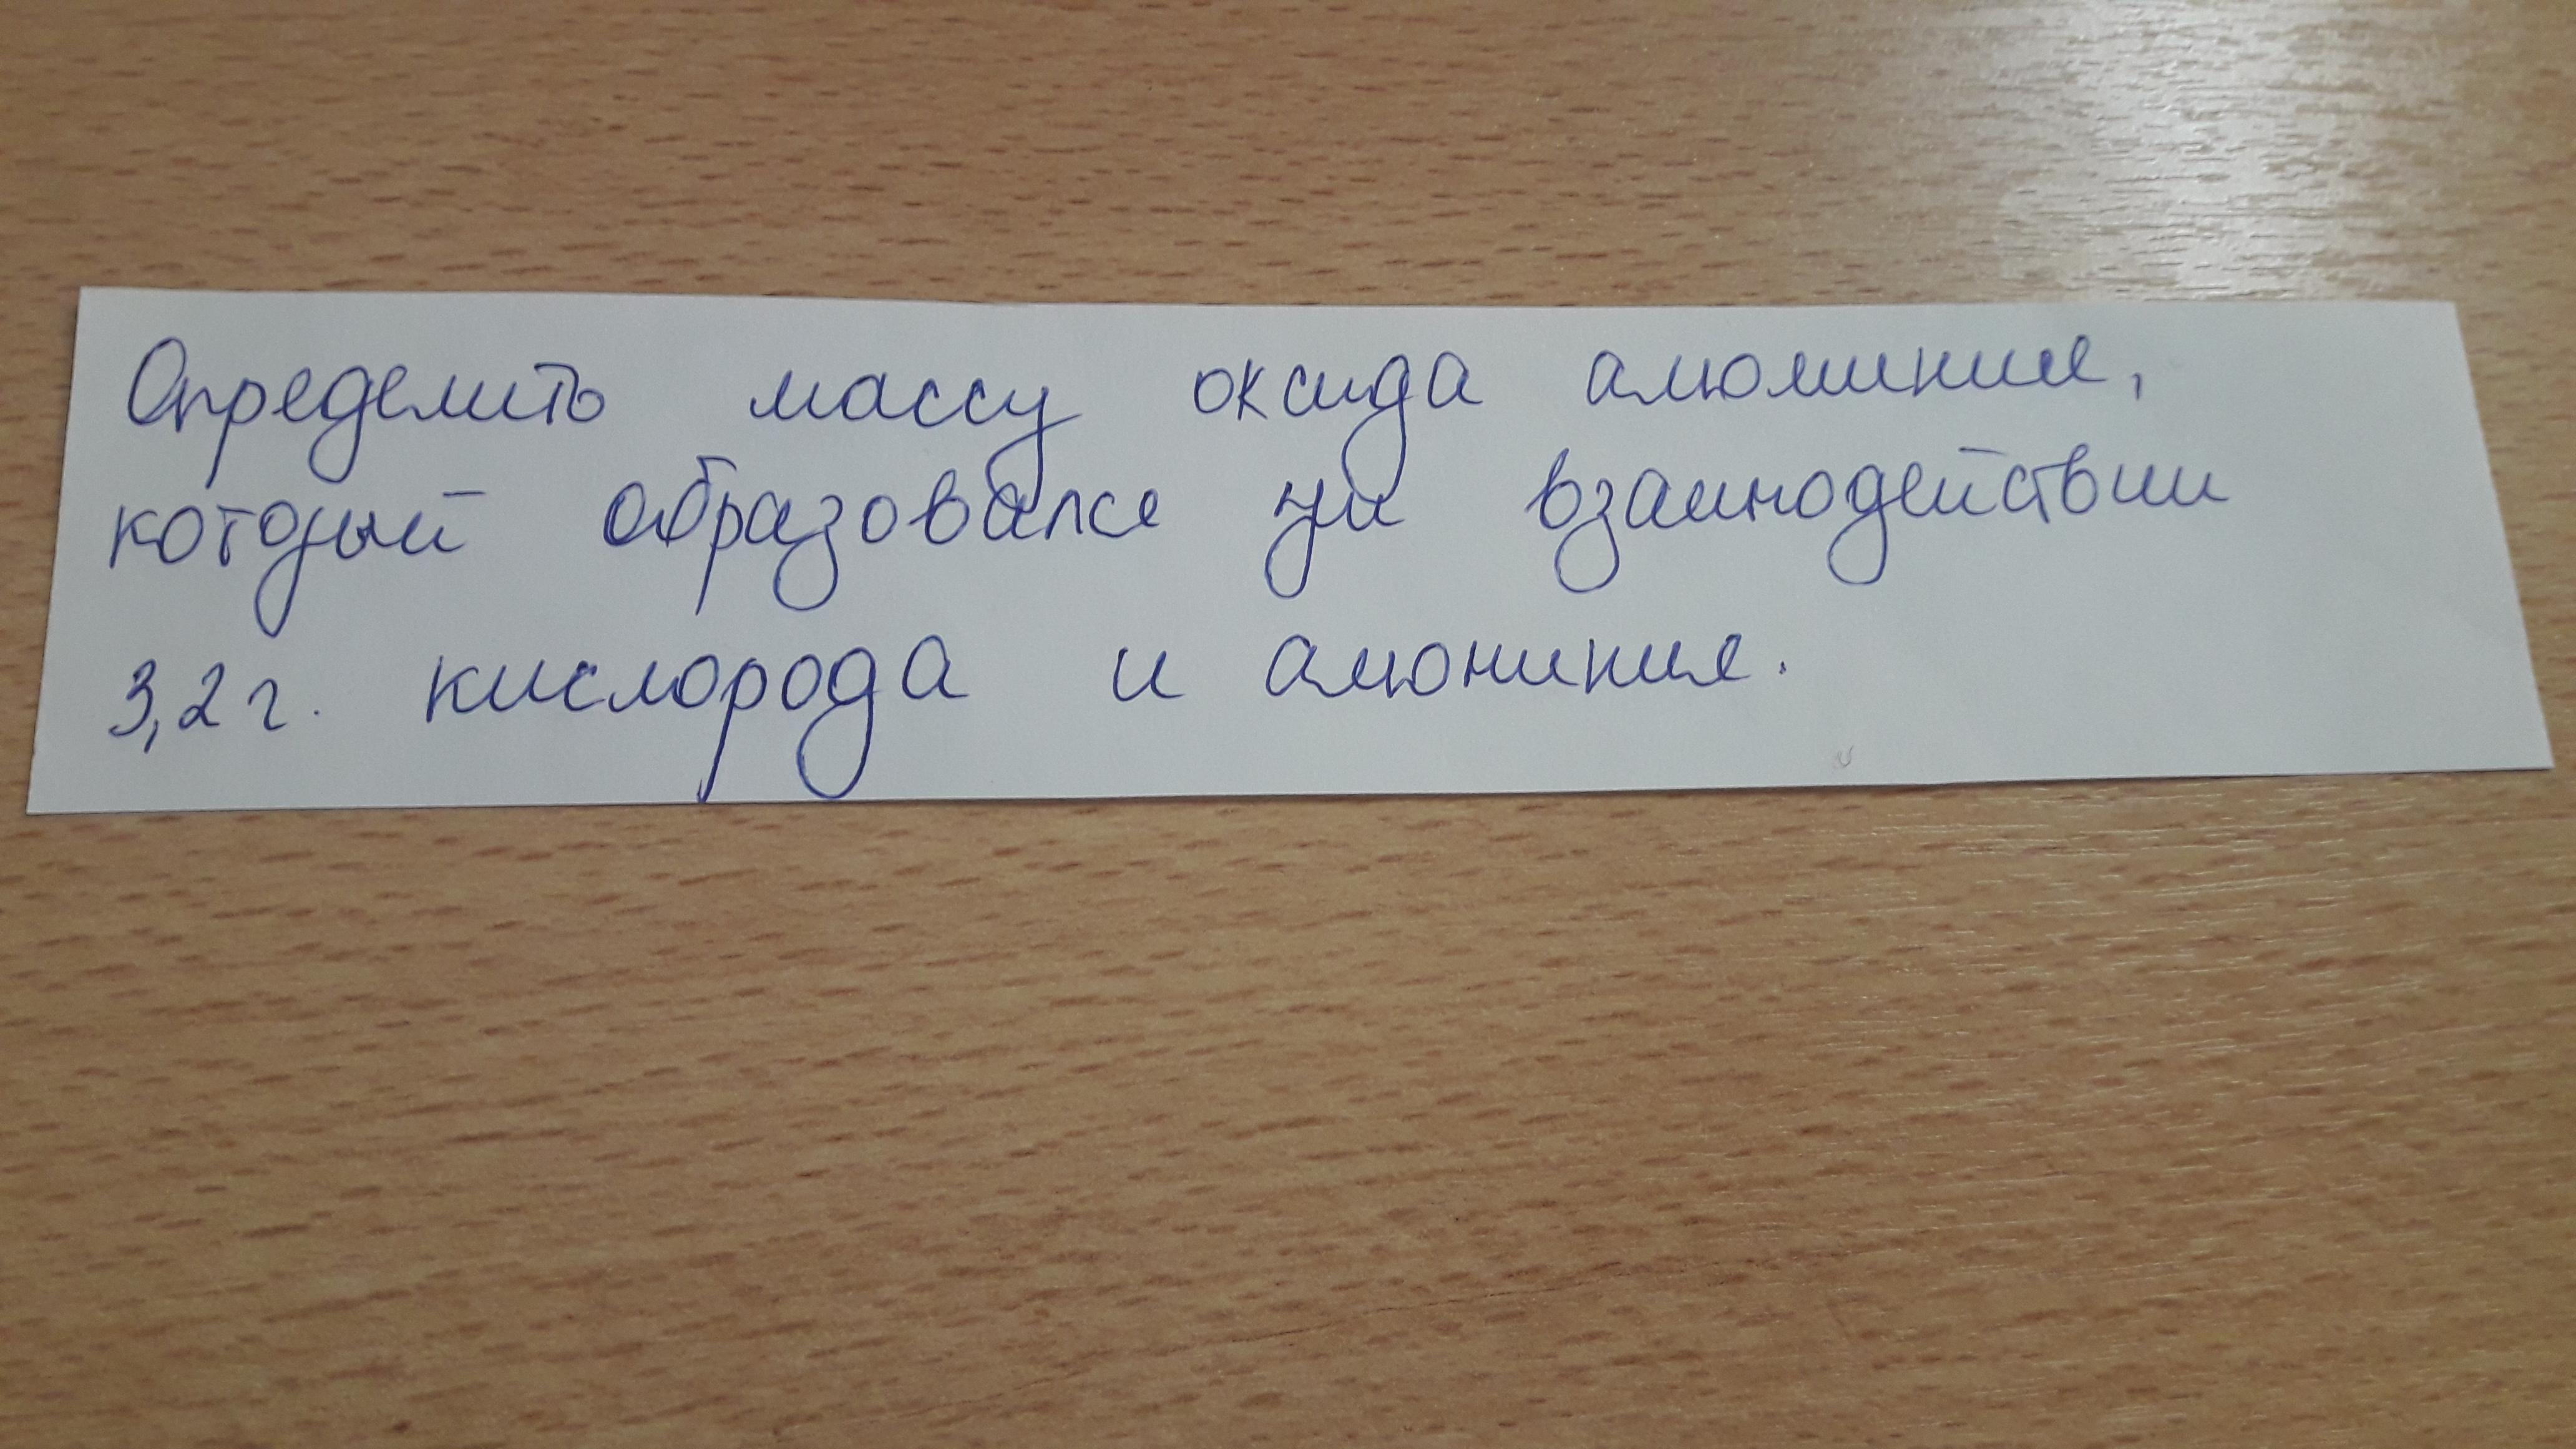 Определить массу оксида алюминия,
который образовался при взаимодействии
3,2 г. кислорода и алюминия.